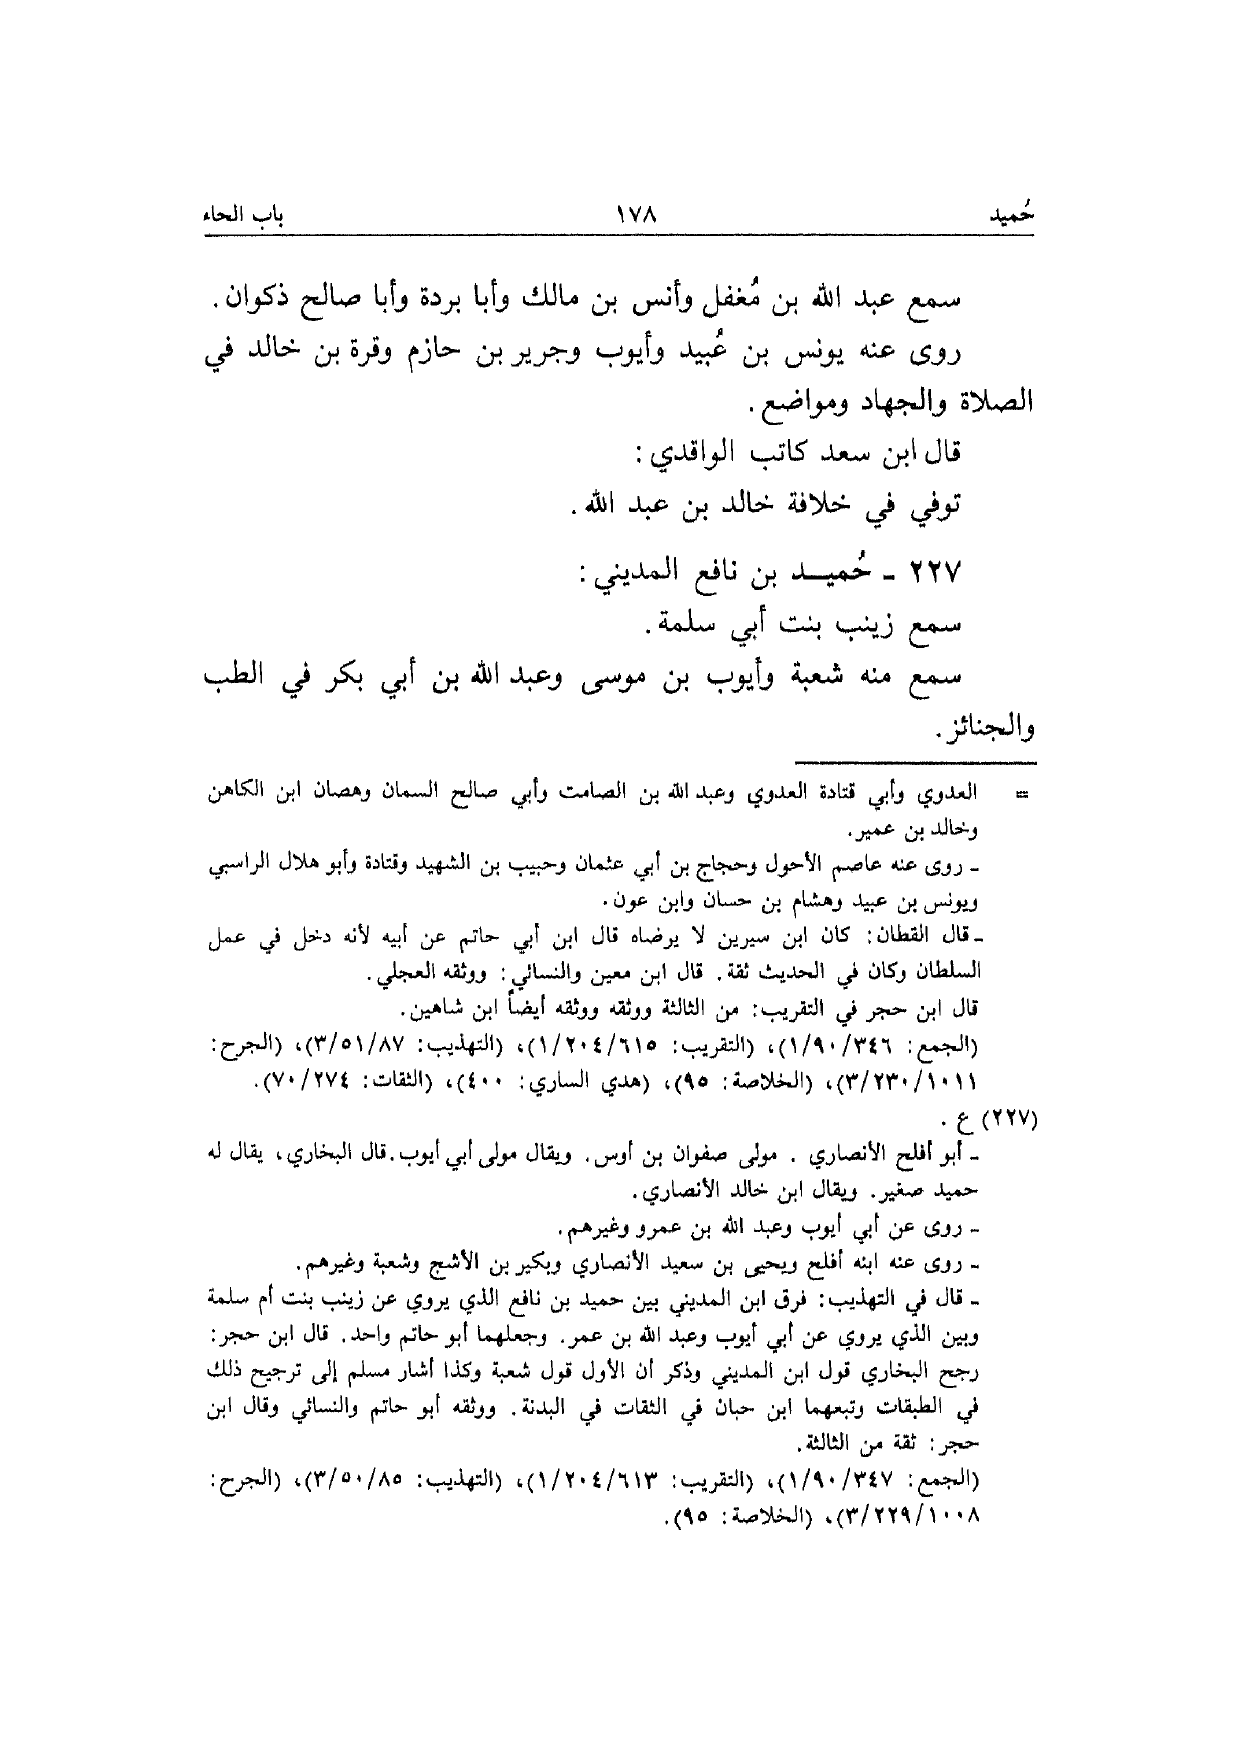 حُميد ١٧٨ باب الحاء
سمع عبد الله بن مُغفل وأنس بن مالك وأبا بردة وأبا صالح ذكوان.
روى عنه يونس بن عُبيد وأيوب وجرير بن حازم وقرة بن خالد في
الصلاة والجهاد ومواضع.
قال ابن سعد كاتب الواقدي:
توفي في خلافة خالد بن عبد الله.
٢٢٧ ـ حُميد بن نافع المديني:
سمع زينب بنت أبي سلمة.
سمع منه شعبة وأيوب بن موسى وعبد الله بن أبي بكر في الطب
والجنائز.
= العدوي وأبي قتادة العدوي وعبد الله بن الصامت وأبي صالح السمان وهصان ابن الكاهن
وخالد بن عمير.
ـ روى عنه عاصم الأحول وحجاج بن أبي عثمان وحبيب بن الشهيد وقتادة وأبو هلال الراسبي
ويونس بن عبيد وهشام بن حسان وابن عون.
ـ قال القطان: كان ابن سيرين لا يرضاه قال ابن أبي حاتم عن أبيه لأنه دخل في عمل
السلطان وكان في الحديث ثقة. قال ابن معين والنسائي: ووثقه العجلي.
قال ابن حجر في التقريب: من الثالثة ووثقه ووثقه أيضاً ابن شاهين.
(الجمع: ١/٩٠/٣٤٦)، (التقريب: ١/٢٠٤/٦١٥)، (التهذيب: ٣/٥١/٨٧)، (الجرح:
٣/٢٣٠/١٠١١)، (الخلاصة: ٩٥)، (هدي الساري: ٤٠٠)، (الثقات: ٧٠/٢٧٤).
(٢٢٧) ع.
ـ أبو أفلح الأنصاري. مولى صفوان بن أوس. ويقال مولى أبي أيوب. قال البخاري، يقال له
حميد صغير. ويقال ابن خالد الأنصاري.
ـ روى عن أبي أيوب وعبد الله بن عمرو وغيرهم.
ـ روى عنه ابنه أفلح ويحيى بن سعيد الأنصاري وبكير بن الأشج وشعبة وغيرهم.
ـ قال في التهذيب: فرق ابن المديني بين حميد بن نافع الذي يروي عن زينب بنت أم سلمة
وبين الذي يروي عن أبي أيوب وعبد الله بن عمر. وجعلهما أبو حاتم واحد. قال ابن حجر:
رجح البخاري قول ابن المديني وذكر أن الأول قول شعبة وكذا أشار مسلم إلى ترجيح ذلك
في الطبقات وتبعهما ابن حبان في الثقات في البدنة. ووثقه أبو حاتم والنسائي وقال ابن
حجر: ثقة من الثالثة.
(الجمع: ١/٩٠/٣٤٧)، (التقريب: ١/٢٠٤/٦١٣)، (التهذيب: ٣/٥٠/٨٥)، (الجرح:
٣/٢٢٩/١٠٠٨)، (الخلاصة: ٩٥).